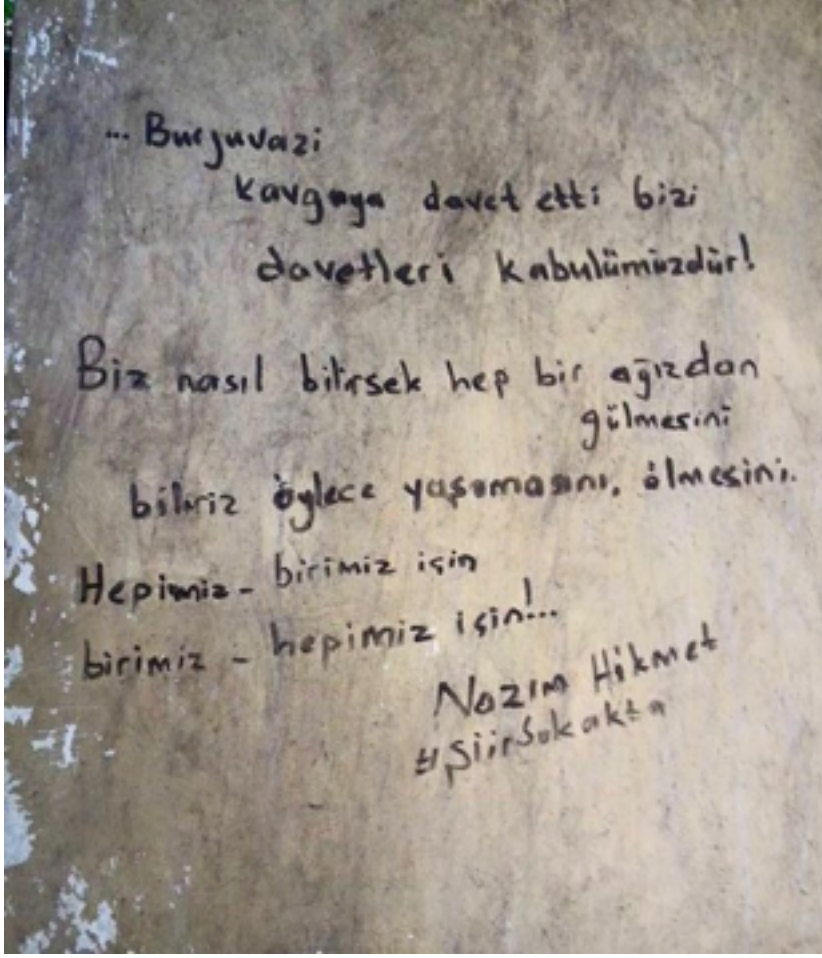 ... Burjuvazi
kavgaya davet etti bizi
davetleri kabulümüzdür!
Biz nasıl bilirsek hep bir ağızdan
gülmesini
biliriz öylece yaşamasını, ölmesini.
Hepimiz - birimiz için
birimiz - hepimiz için!...
Nazım Hikmet
#şiirSokakta